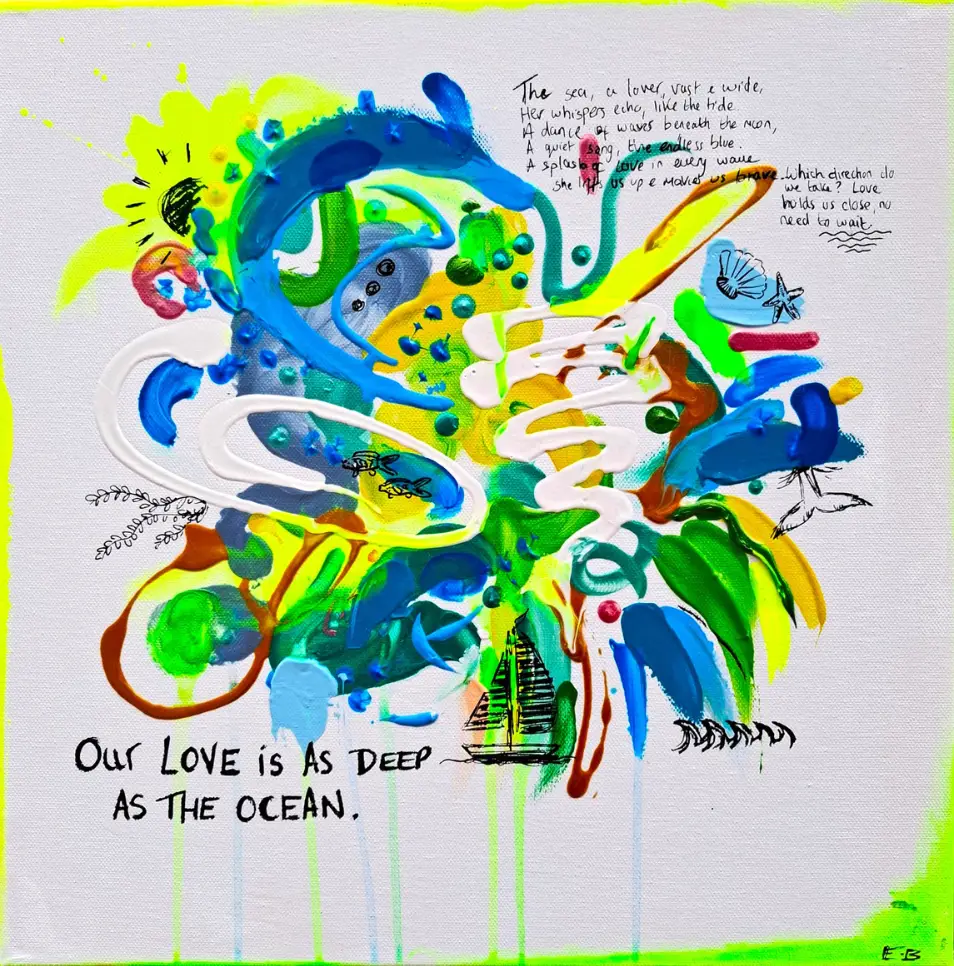 The sea, a lover, vast & wide,
Her whispers echo, like the tide.
A dance of waves beneath the moon,
A quiet song, the endless blue.
A splash of love in every wave
She lifts us up & makes us brave.
Which direction do
we take? Love
holds us close, no
need to wait.
OUR LOVE is AS DEEP
AS THE OCEAN.
E.B